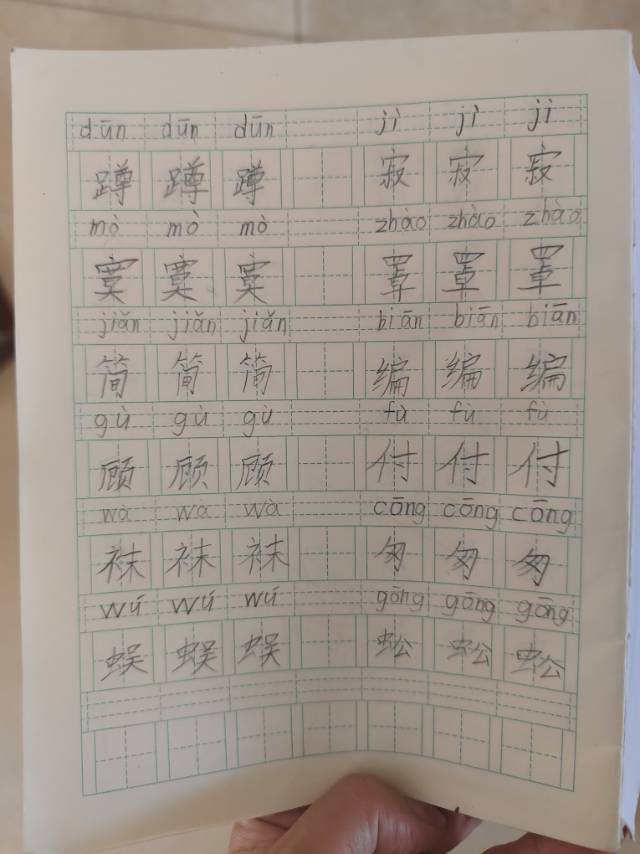 dūn dūn dūn jì jì jì
蹲 蹲 蹲 寂 寂 寂
mò mò mò zhào zhào zhào
寞 寞 寞 罩 罩 罩
jiǎn jiǎn jiǎn biān biān biān
简 简 简 编 编 编
gù gù gù fù fù fù
顾 顾 顾 付 付 付
wà wà wà cōng cōng cōng
袜 袜 袜 匆 匆 匆
wú wú wú gōng gōng gōng
蜈 蜈 蜈 蚣 蚣 蚣